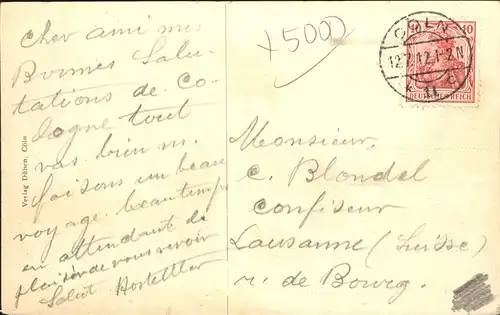 Cher ami mes
Bonnes Salu-
tations de Co-
logne tout
vas bien n.
faisons un beau
voyage. beau temps
en attendant le
plaisir de vous revoir
Salut Hostettler
x 5000
CÖLN
12.7.12.1-2N
11
10
DEUTSCHES REICH
Monsieur,
C. Blondel
confiseur
Lausanne (Suisse)
r. de Bourg.
Verlag Düben, Cöln